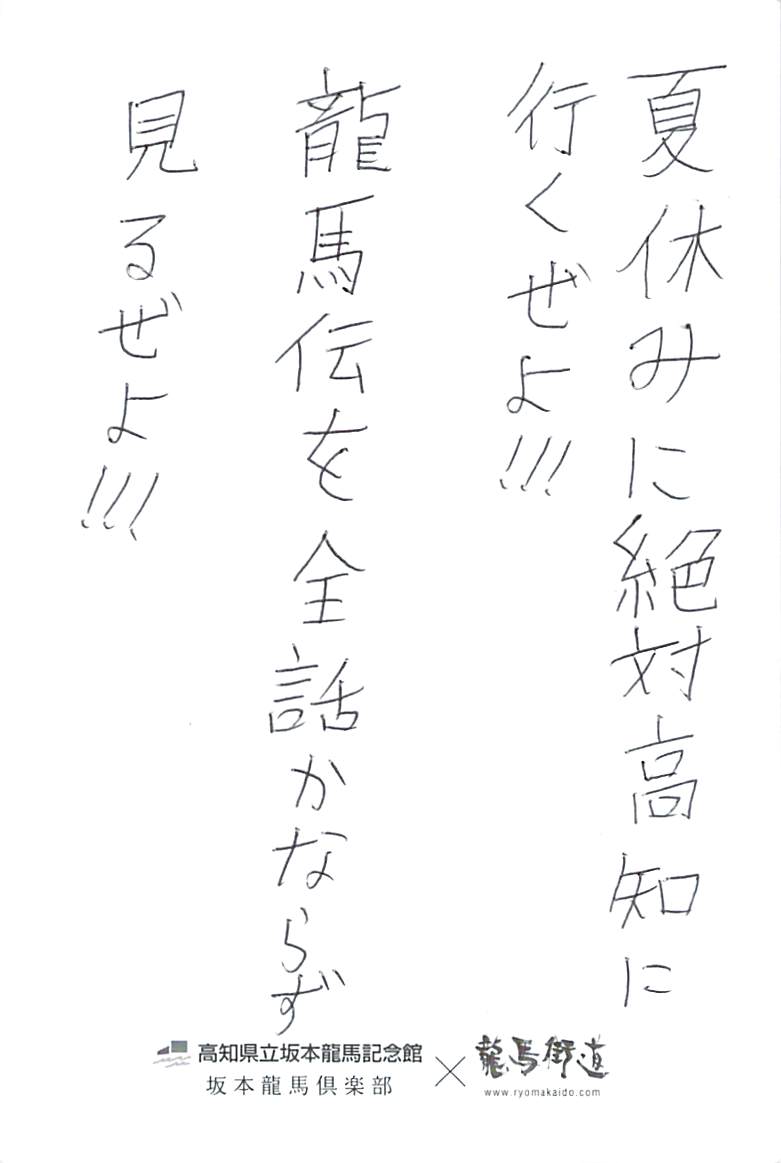 夏休みに絶対高知に
行くぜよ!!!
龍馬伝を全話かならず
見るぜよ!!!
高知県立坂本龍馬記念館
坂本龍馬倶楽部
×
龍馬街道
www.ryomakaido.com